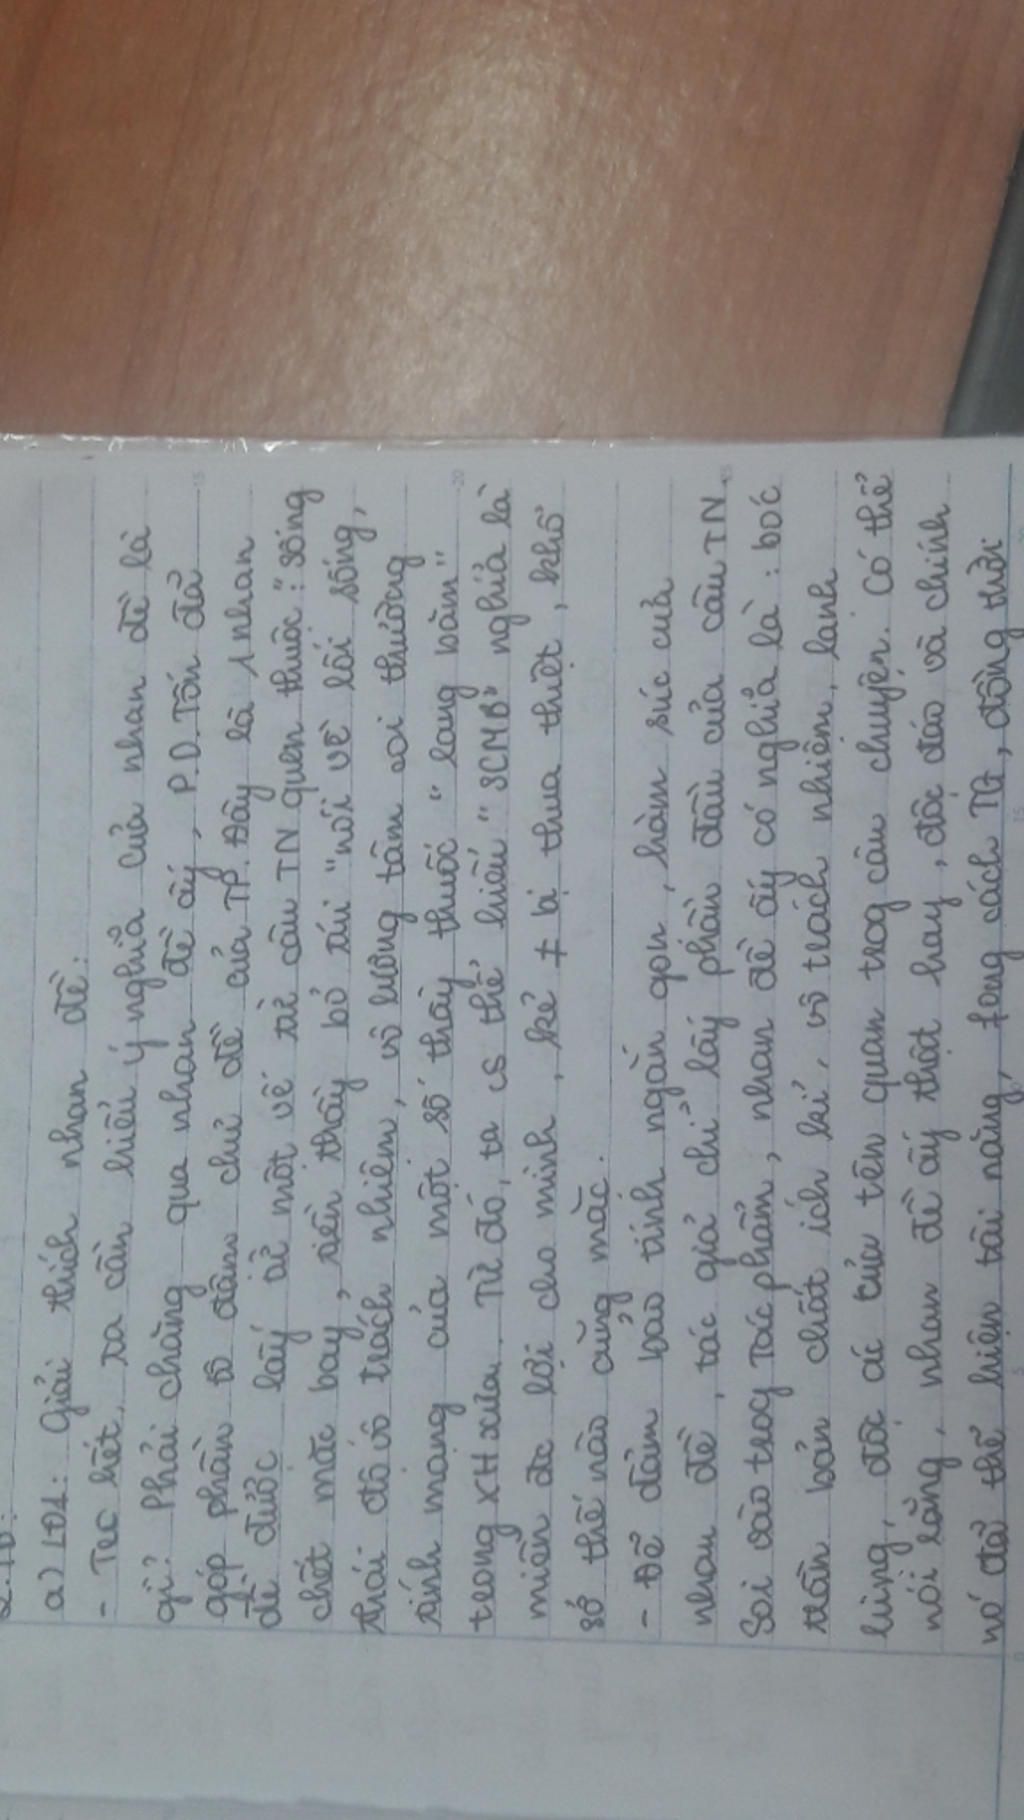 2. TB:
a) LĐ1: Giải thích nhan đề:
- Trc hết, ta cần hiểu ý nghĩa của nhan đề là
gì? Phải chăng qua nhan đề ấy, P.D.Tốn đã
góp phần tô đậm chủ đề của TP. Đây là 1 nhan
đề được lấy từ một vế từ câu TN quen thuộc: "Sống
chết mặc bay, tiền thầy bỏ túi" nói về lối sống,
thái độ vô trách nhiệm, vô lương tâm coi thường
tính mạng của một số thầy thuốc "lang băm"
trong XH xưa. Từ đó, ta cs thể hiểu "SCMB" nghĩa là
miễn đc lợi cho mình, kẻ ≠ bị thua thiệt, khổ
sở thế nào cũng mặc.
- Để đảm bảo tính ngắn gọn, hàm súc của
nhan đề, tác giả chỉ lấy phần đầu của câu TN.
Soi vào trog tác phẩm, nhan đề ấy có nghĩa là: bóc
trần bản chất ích kỉ, vô trách nhiệm, lạnh
lùng, độc ác của tên quan trog câu chuyện. Có thể
nói rằng, nhan đề ấy thật hay, độc đáo và chính
nó đã thể hiện tài năng, fong cách TG, đồng thời